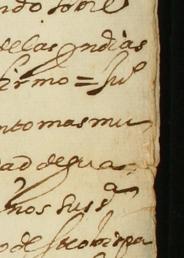 ndo sobre
de las yndias
firmo = su
nto mas mu
dad de gua
mos suss
o de